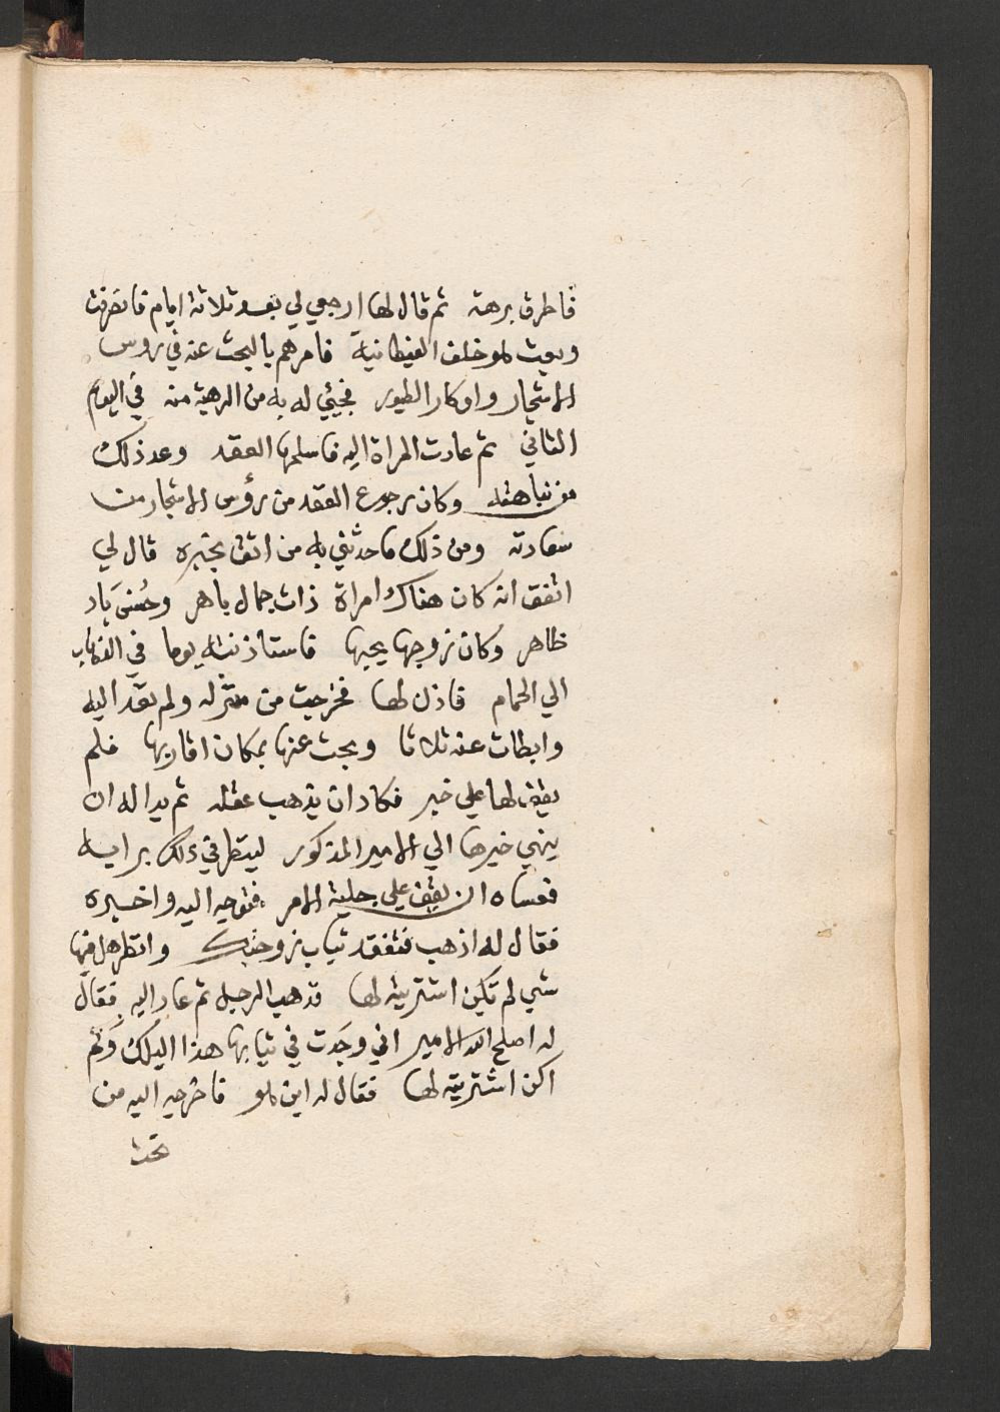 فاطرق برهة ثم قال لها ارجعي لي بعد ثلاثة ايام فانصرفت
وبعث هو خلف الغيطانية فامرهم بالبحث عنه في روس
الاشجار واوكار الطيور فجيئي له به من الرهبة منه في اليوم
الثاني ثم عادت المراة اليه فاسلمها العقد وعد ذلك
من نباهته وكان رجوع العقد من رؤس الاشجار من
سعادته ومن ذلك ما حدثني به من اثق بخبره قال لي
اتفق انه كان هناك امراة ذات جمال باهر وحسن باد
ظاهر وكان زوجها يحبها فاستاذنته يوما في الذهاب
الي الحمام فاذن لها فخرجت من منزله ولم تعد اليه
وابطات عنه ثلاثا وبحث عنها بمكان اقاربها فلم
يقف لها علي خبر فكاد ان يذهب عقله ثم بدا له ان
ينهي خبرها الي الامير المذكور لينظر في ذلك برايه
فعساه ان يقف علي جلية الامر فتوجه اليه واخبره
فقال له اذهب فتفقد ثياب زوجتك وانظر هل فيها
شي لم تكن اشتريته لها فذهب الرجل ثم عاد اليه فقال
له اصلح الله الامير اني وجدت في ثيابها هذا اليلك ولم
اكن اشتريته لها فقال له اين هو فاخرجه اليه من
تحت